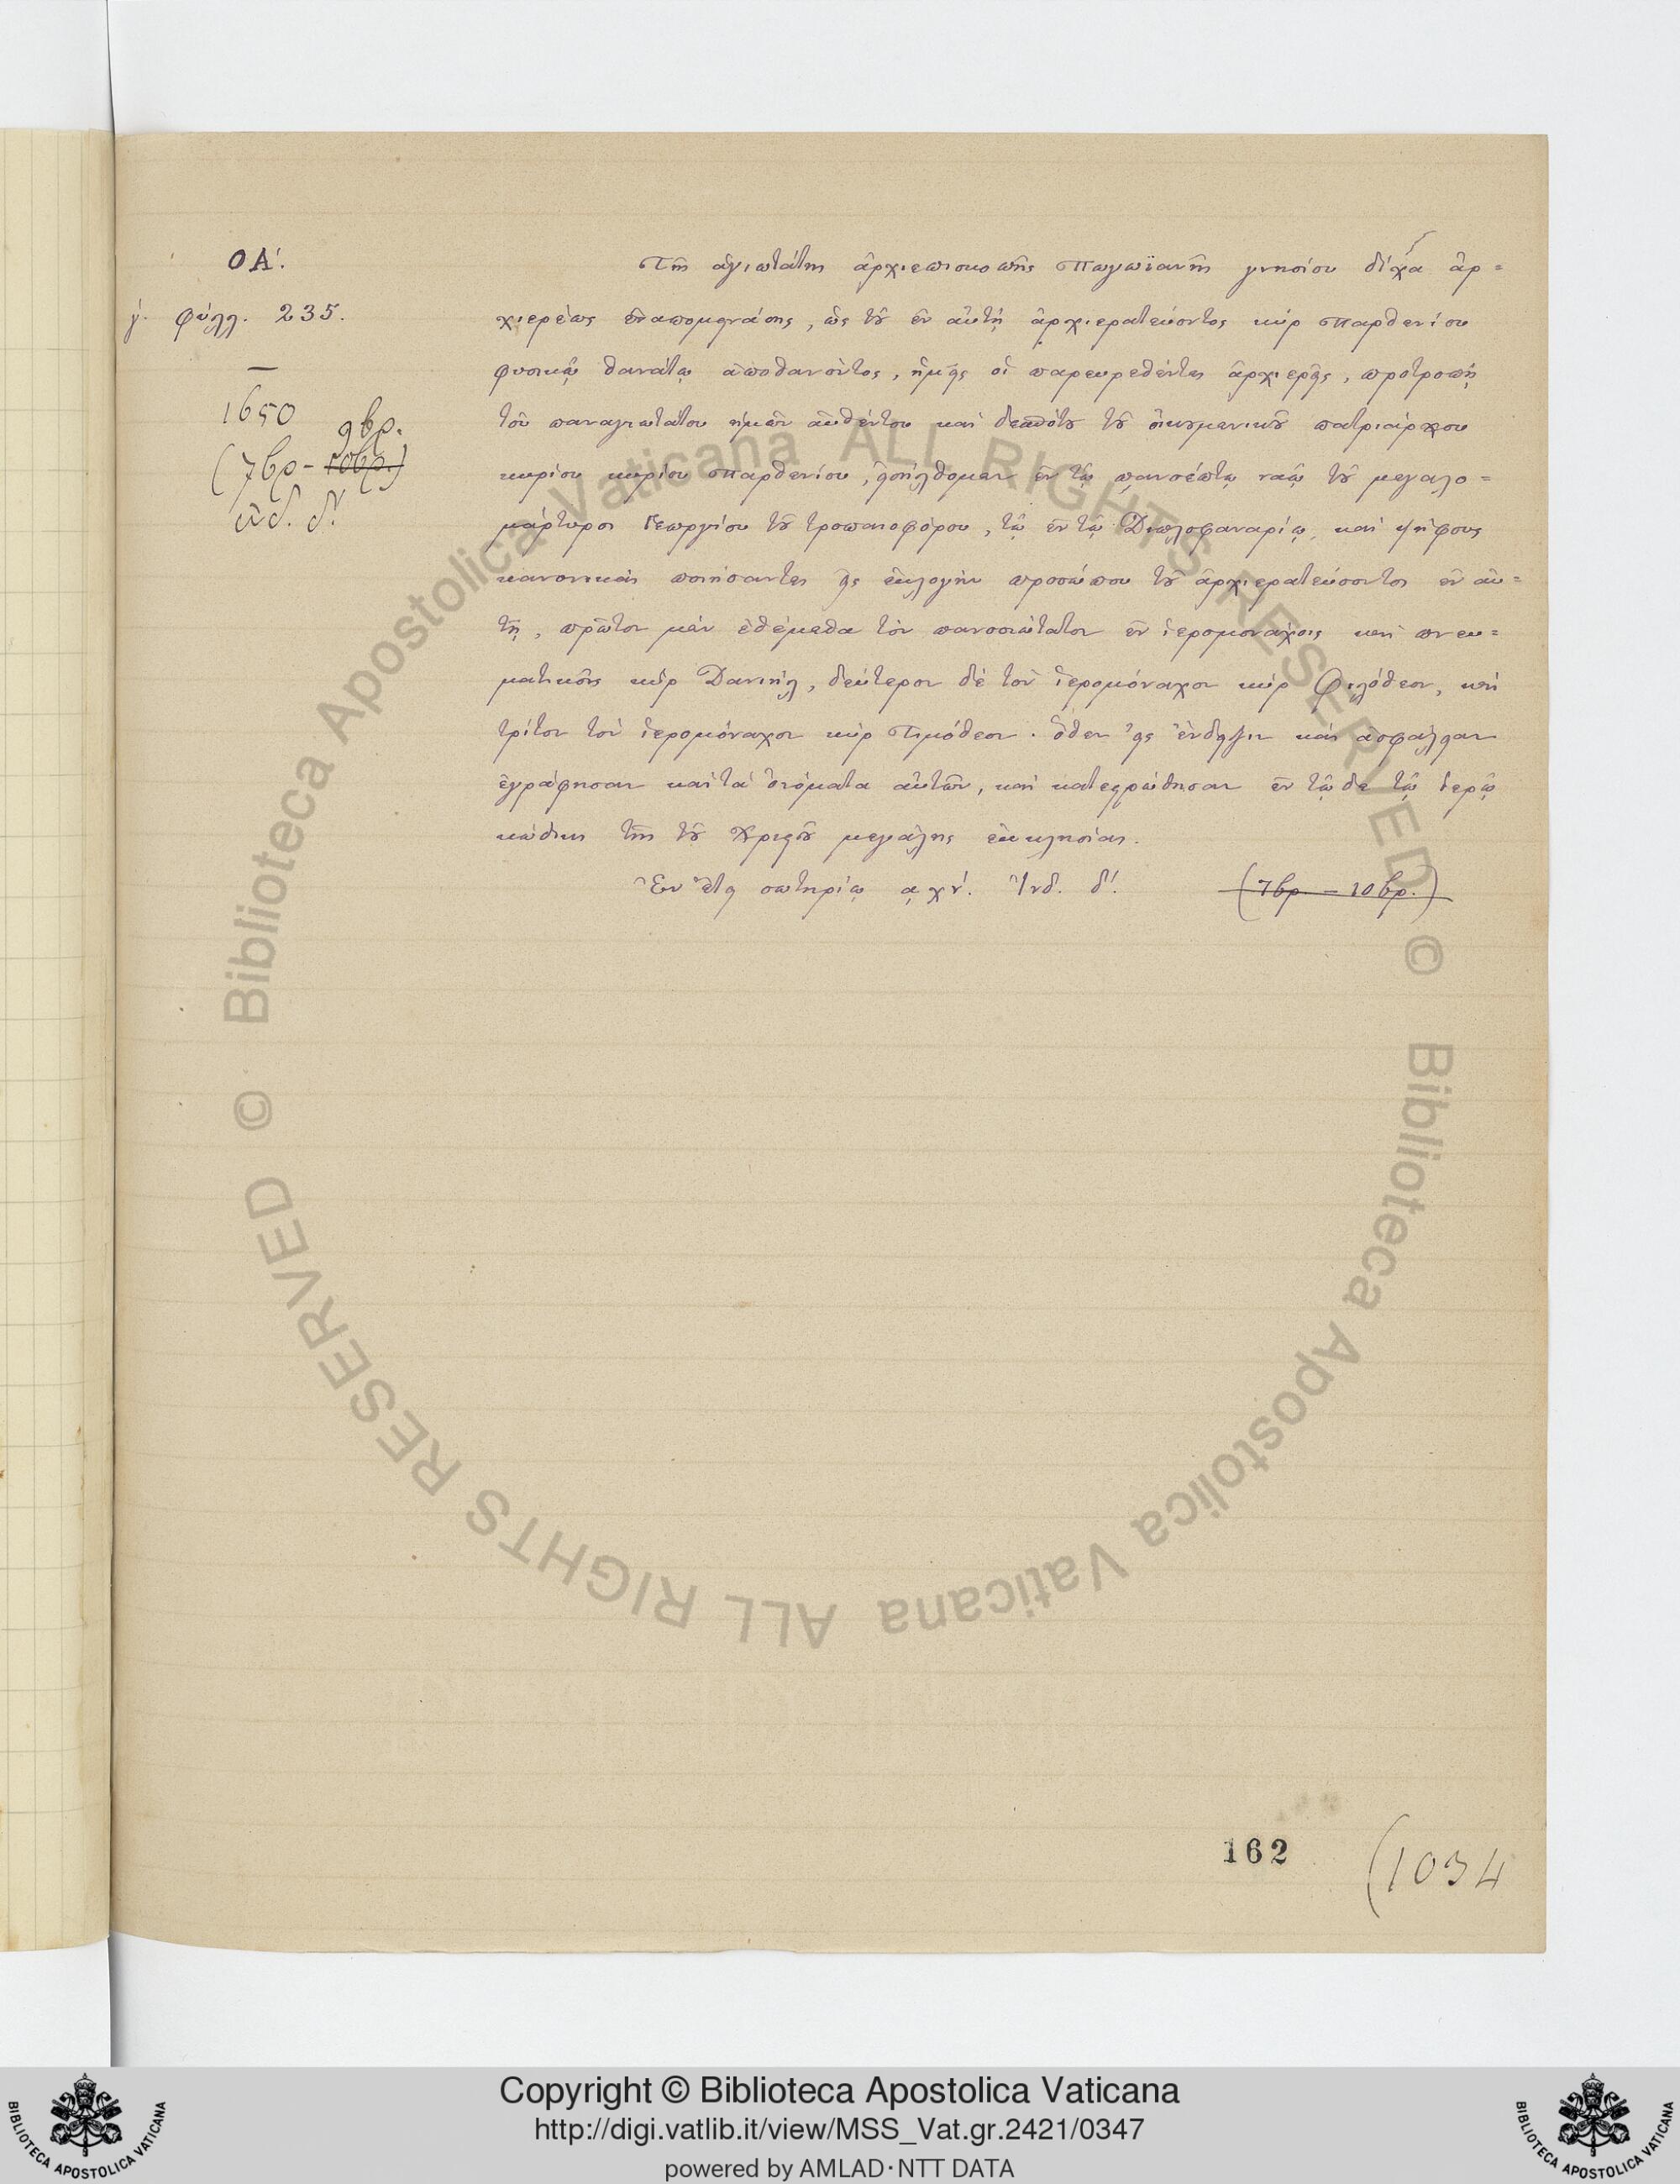 ΟΑ΄.
γ΄. φύλλ. 235.
1650
9βρ.
(7βρ – 10βρ.)
ἰνδ. δ΄.
Τῆς ἁγιωτάτης ἀρχιεπισκοπῆς Πωγωϊανῆς γνησίου δίχα ἀρ=
χιερέως ἐναπομεινάσης, ὡς τοῦ ἐν αὐτῇ ἀρχιερατεύοντος κὺρ Παρθενίου
φυσικῷ θανάτῳ ἀποθανόντος, ἡμεῖς οἱ παρευρεθέντες ἀρχιερεῖς, προτροπῇ
τοῦ παναγιωτάτου ἡμῶν αὐθέντου καὶ δεσπότου τοῦ οἰκουμενικοῦ πατριάρχου
κυρίου κυρίου Παρθενίου, εἰσήλθομεν ἐν τῷ πανσέπτῳ ναῷ τοῦ μεγαλο=
μάρτυρος Γεωργίου τοῦ τροπαιοφόρου, τῷ ἐν τῷ Διπλοφαναρίῳ, καὶ ψήφους
κανονικὰς ποιήσαντες εἰς ἐκλογὴν προσώπου τοῦ ἀρχιερατεύσοντος ἐν αὐ=
τῇ, πρῶτον μὲν ἐθέμεθα τὸν πανοσιώτατον ἐν ἱερομονάχοις καὶ πνευ=
ματικοῖς κὺρ Δανιήλ, δεύτερον δὲ τὸν ἱερομόναχον κὺρ Φιλόθεον, καὶ
τρίτον τὸν ἱερομόναχον κὺρ Τιμόθεον. ὅθεν εἰς ἔνδειξιν καὶ ἀσφάλειαν
ἐγράφησαν καὶ τὰ ὀνόματα αὐτῶν, καὶ κατεστρώθησαν ἐν τῷδε τῷ ἱερῷ
κώδικι τῆς τοῦ Χριστοῦ μεγάλης ἐκκλησίας.
Ἐν ἔτει σωτηρίῳ ͵αχν΄. Ἰνδ. δ΄. (7βρ. – 10βρ.)
162
(1034
© Biblioteca Apostolica Vaticana ALL RIGHTS RESERVED
© Biblioteca Apostolica Vaticana ALL RIGHTS RESERVED
Copyright © Biblioteca Apostolica Vaticana
http://digi.vatlib.it/view/MSS_Vat.gr.2421/0347
powered by AMLAD·NTT DATA
BIBLIOTECA APOSTOLICA VATICANA
BIBLIOTECA APOSTOLICA VATICANA